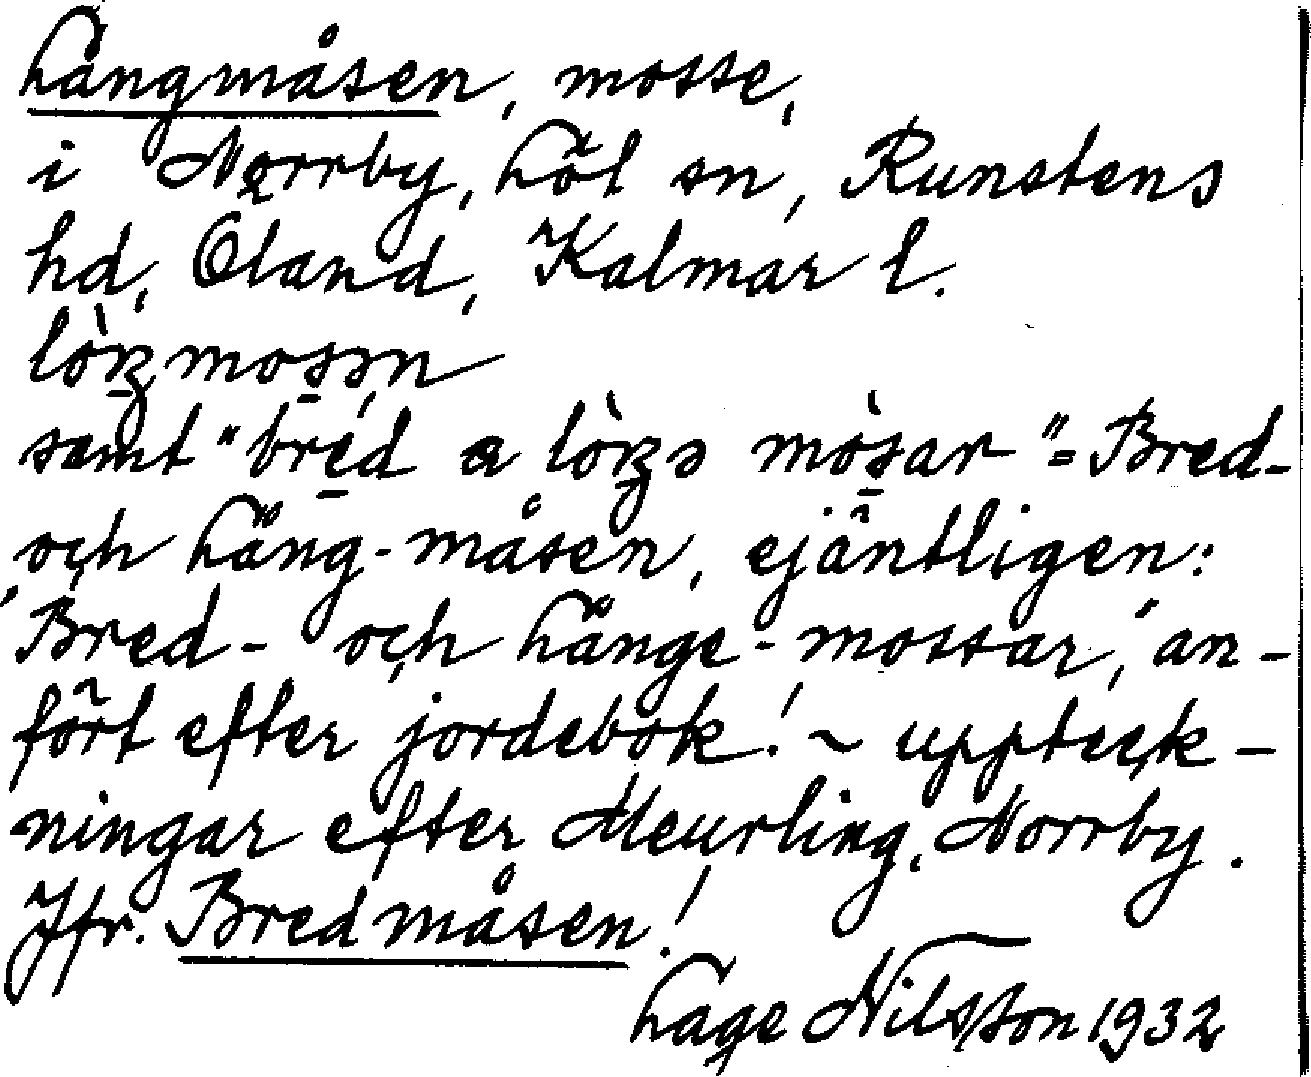 Långmåsen, mosse,
i Norrby, Löt sn, Runstens
hd, Öland, Kalmar l.
lòŋmosən
samt "bred a lòŋə mòsar" = Bred-
och Lång-måsen, ejäntligen:
"Bred- och Långe-mossar", an-
fört efter jordebok! ~ uppteck-
ningar efter Meurling, Norrby.
Jfr. Bredmåsen!
Lage Nilsson 1932